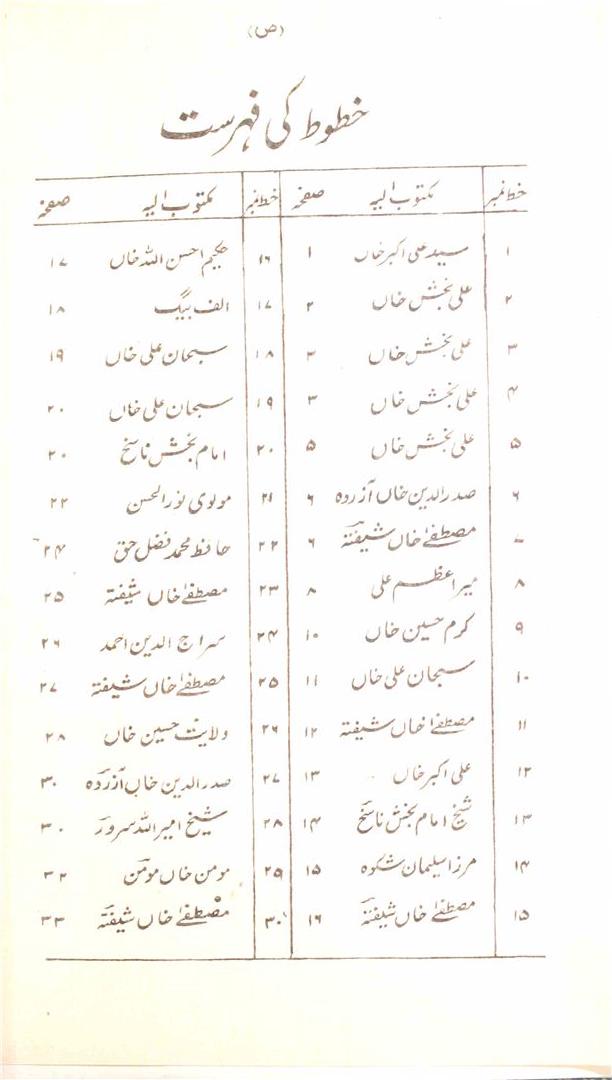 (ص)
خطوط کی فہرست
خط نمبر مکتوب الیہ صفحہ خط نمبر مکتوب الیہ صفحہ
۱ سید علی اکبر خاں ۱ ۱۶ حکیم احسن اللہ خاں ۱۷
۲ علی بخش خاں ۲ ۱۷ الف بیگ ۱۸
۳ علی بخش خاں ۲ ۱۸ سبحان علی خاں ۱۹
۴ علی بخش خاں ۳ ۱۹ سبحان علی خاں ۲۰
۵ علی بخش خاں ۵ ۲۰ امام بخش ناسخ ۲۰
۶ صدر الدین خاں آزردہ ۶ ۲۱ مولوی نور الحسن ۲۲
۷ مصطفےٰ خاں شیفتہ ۶ ۲۲ حافظ محمد فضل حق ۲۴
۸ میر اعظم علی ۸ ۲۳ مصطفےٰ خاں شیفتہ ۲۵
۹ کرم حسین خاں ۱۰ ۲۴ سراج الدین احمد ۲۶
۱۰ سبحان علی خاں ۱۱ ۲۵ مصطفےٰ خاں شیفتہ ۲۷
۱۱ مصطفےٰ خاں شیفتہ ۱۲ ۲۶ ولایت حسین خاں ۲۸
۱۲ علی اکبر خاں ۱۳ ۲۷ صدر الدین خاں آزردہ ۳۰
۱۳ شیخ امام بخش ناسخ ۱۴ ۲۸ شیخ امیر اللہ سرور ۳۰
۱۴ مرزا سلیمان شکوہ ۱۵ ۲۹ مومن خاں مومن ۳۲
۱۵ مصطفےٰ خاں شیفتہ ۱۶ ۳۰ مصطفےٰ خاں شیفتہ ۳۳